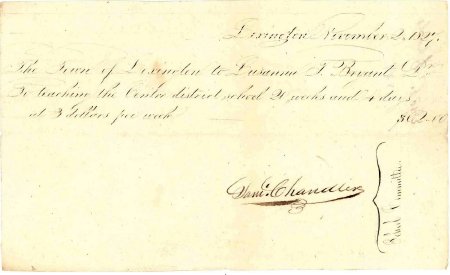 Lexington November 2, 1827.
The Town of Lexington to Susanna J. Bryant Dr
To teaching the Centre district school 20 weeks and 4 days
at 3 dollars per week
Danl. Chandler
School Committee